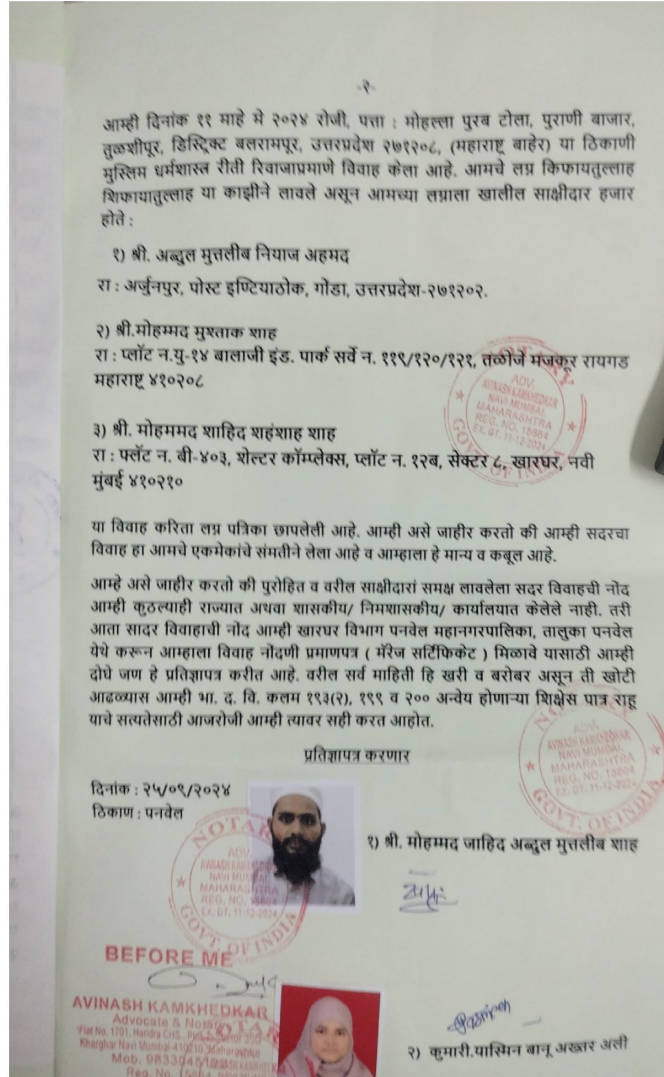 -२-
आम्ही दिनांक ११ माहे मे २०२४ रोजी, पत्ता : मोहल्ला पुरब टोला, पुराणी बाजार,
तुळशीपूर, डिस्ट्रिक्ट बलरामपूर, उत्तरप्रदेश २७१२०८, (महाराष्ट्र बाहेर) या ठिकाणी
मुस्लिम धर्मशास्त्र रीती रिवाजाप्रमाणे विवाह केला आहे. आमचे लग्न किफायतुल्लाह
शिफायातुल्लाह या काझीने लावले असून आमच्या लग्नाला खालील साक्षीदार हजार
होते :
१) श्री. अब्दुल मुत्तलीब नियाज अहमद
रा : अर्जुनपुर, पोस्ट इण्टियाठोक, गोंडा, उत्तरप्रदेश-२७१२०२.
२) श्री.मोहम्मद मुश्ताक शाह
रा : प्लॉट न.यु-१४ बालाजी इंड. पार्क सर्वे न. ११९/१२०/१२१, तळोजे मजकूर रायगड
महाराष्ट्र ४१०२०८
३) श्री. मोहममद शाहिद शहंशाह शाह
रा : फ्लॅट न. बी-४०३, शेल्टर कॉम्प्लेक्स, प्लॉट न. १२ब, सेक्टर ८, खारघर, नवी
मुंबई ४१०२१०
या विवाह करिता लग्न पत्रिका छापलेली आहे. आम्ही असे जाहीर करतो की आम्ही सदरचा
विवाह हा आमचे एकमेकांचे संमतीने लेला आहे व आम्हाला हे मान्य व कबूल आहे.
आम्हे असे जाहीर करतो की पुरोहित व वरील साक्षीदारां समक्ष लावलेला सदर विवाहची नोंद
आम्ही कुठल्याही राज्यात अथवा शासकीय/ निमशासकीय/ कार्यालयात केलेले नाही. तरी
आता सादर विवाहाची नोंद आम्ही खारघर विभाग पनवेल महानगरपालिका, तालुका पनवेल
येथे करून आम्हाला विवाह नोंदणी प्रमाणपत्र ( मॅरेज सर्टिफिकेट ) मिळावे यासाठी आम्ही
दोघे जण हे प्रतिज्ञापत्र करीत आहे. वरील सर्व माहिती हि खरी व बरोबर असून ती खोटी
आढळ्यास आम्ही भा. द. वि. कलम १९३(२), १९९ व २०० अन्वेय होणाऱ्या शिक्षेस पात्र राहू
याचे सत्यतेसाठी आजरोजी आम्ही त्यावर सही करत आहोत.
प्रतिज्ञापत्र करणार
दिनांक : २५/०९/२०२४
ठिकाण : पनवेल
१) श्री. मोहम्मद जाहिद अब्दुल मुत्तलीब शाह
NOTARY
ADV.
AVINASH KAMKHEDKAR
NAVI MUMBAI
MAHARASHTRA
REG. NO. 15664
EX. DT. 11-12-2024
GOVT. OF INDIA
BEFORE ME
AVINASH KAMKHEDKAR
Advocate & Notary
Kharghar Navi Mumbai-410210, Maharashtra
२) कुमारी.यास्मिन बानू अख्तर अली